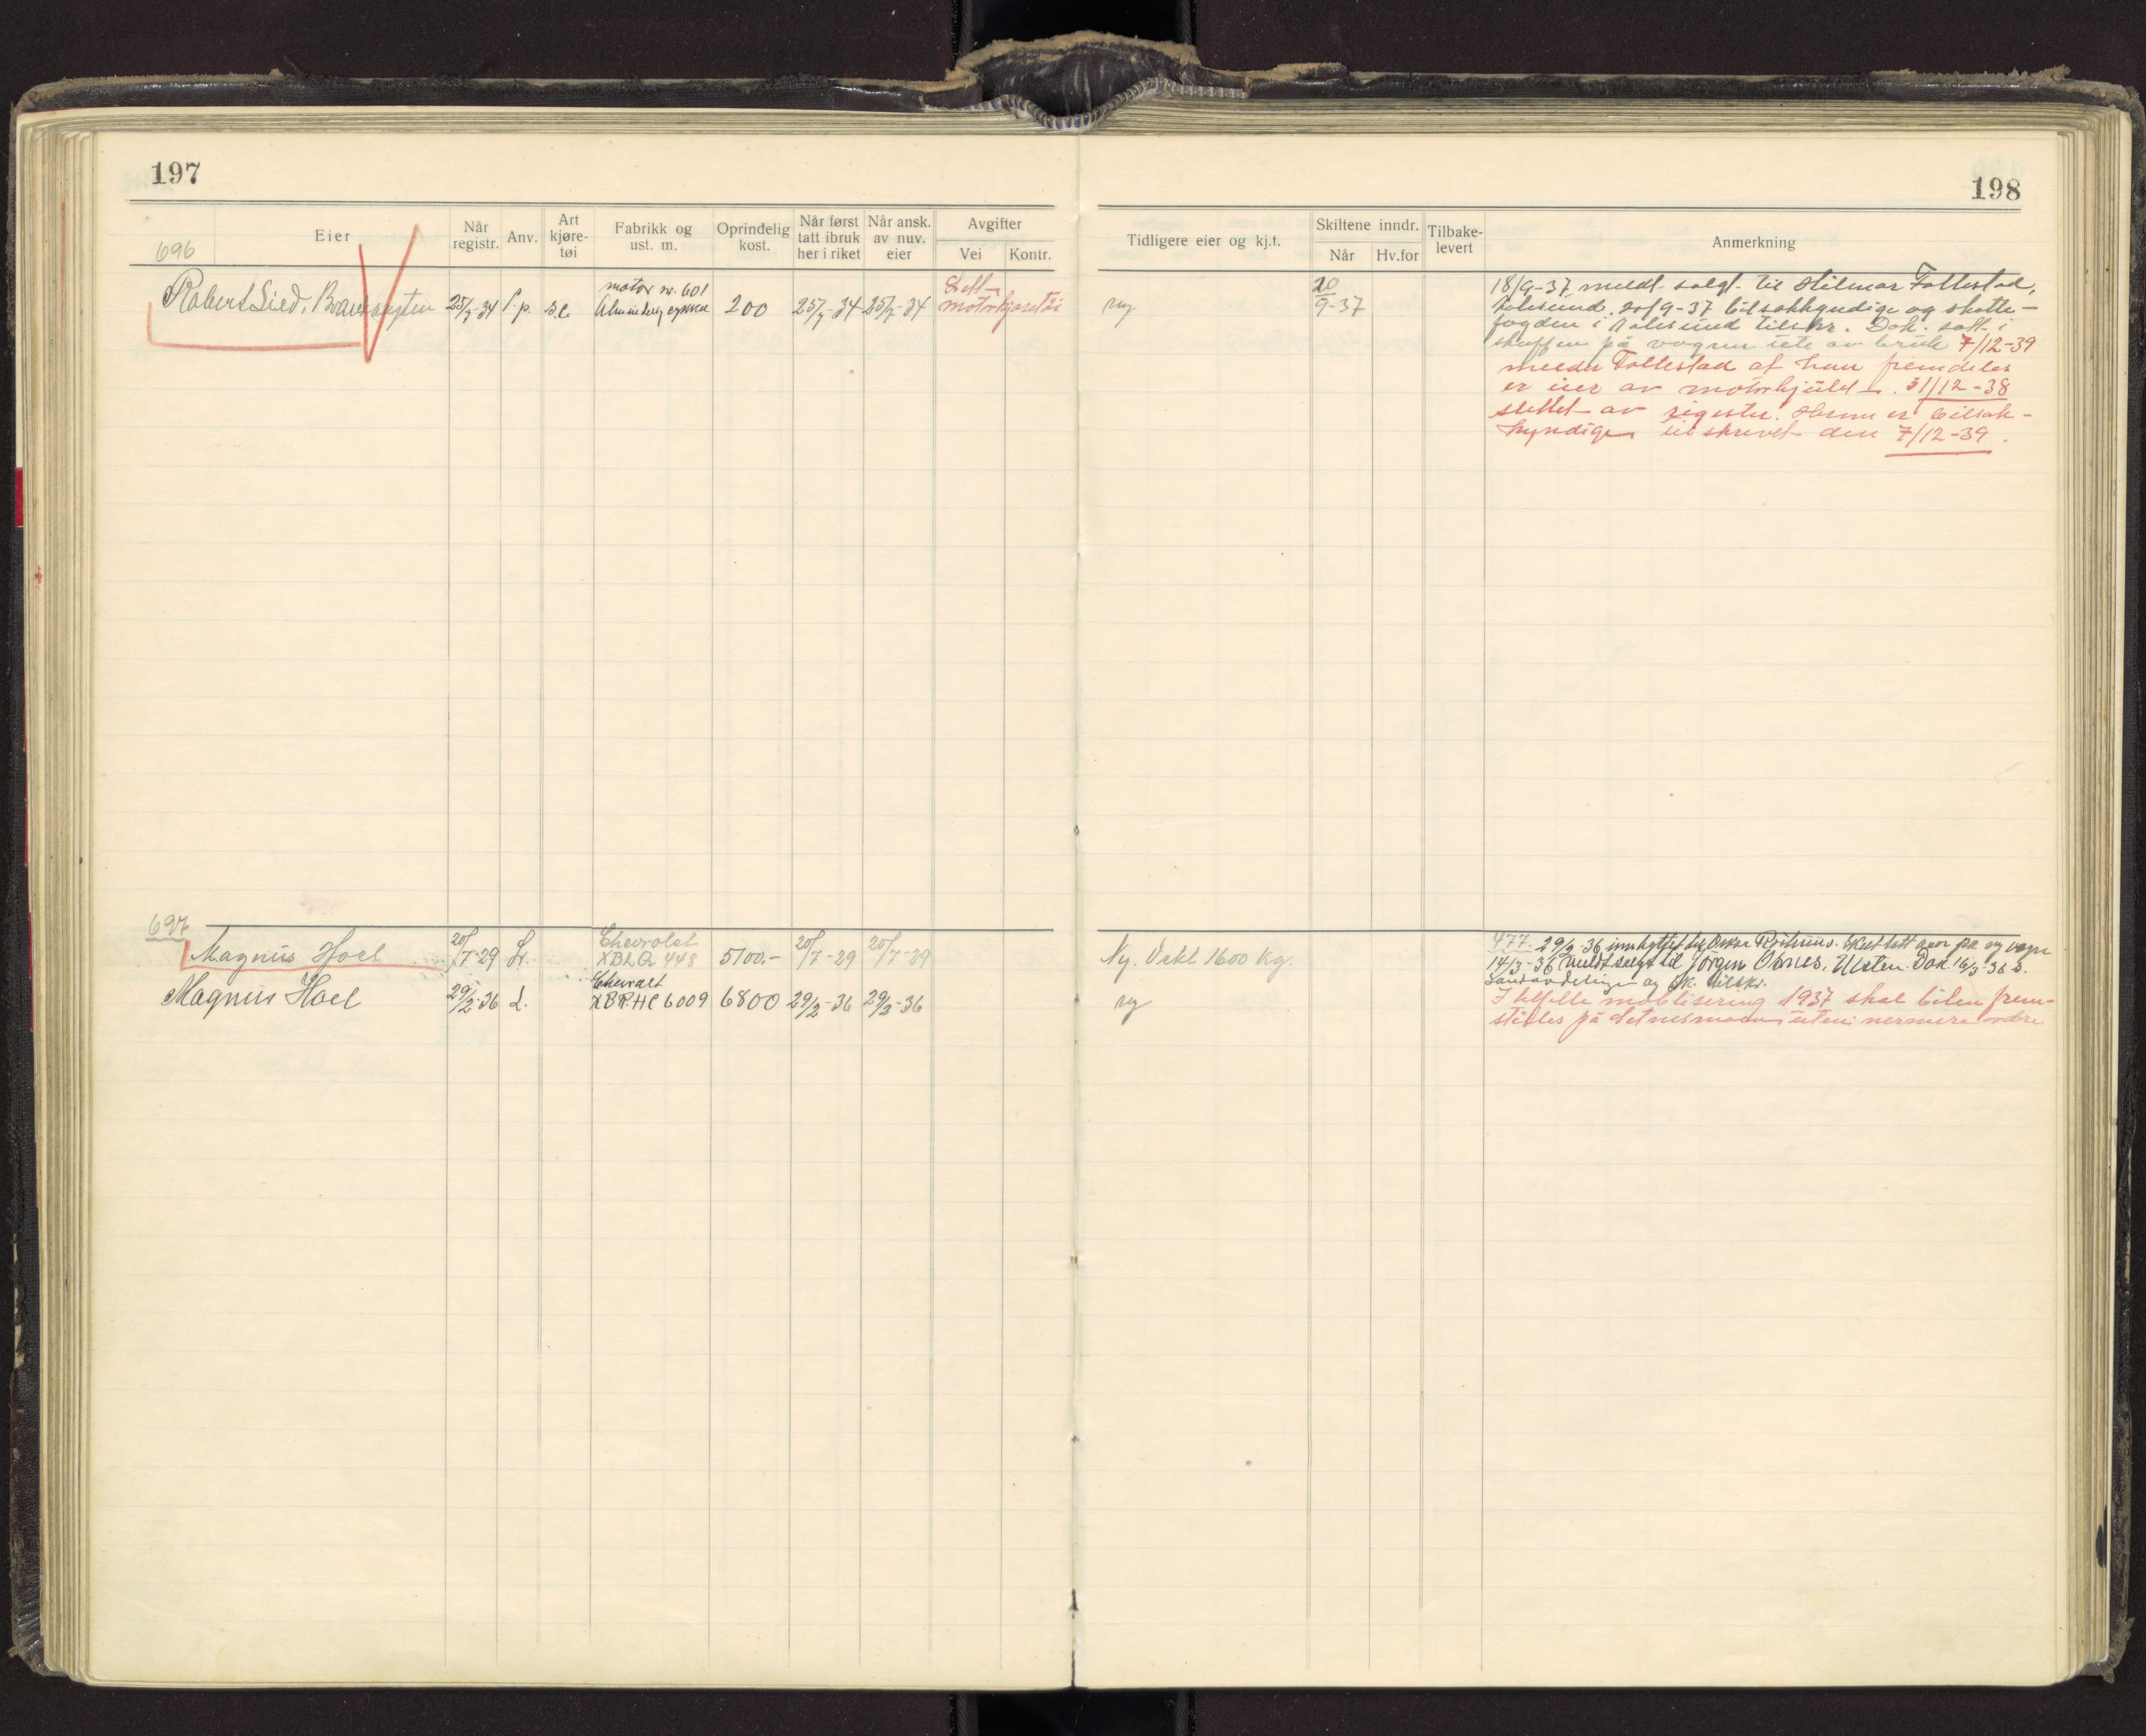 197
198
Eier
Når registr.
Anv.
Art kjøre-tøi
Fabrikk og ust. m.
Oprindelig kost.
Når først tatt ibruk her i riket
Når ansk. av nuv. eier
Avgifter
Vei
Kontr.
Tidligere eier og kj.t.
Skiltene inndr.
Når
Hv.for
Tilbake-levert
Anmerkning
696
Robert Lied,
25/7-34
motor nr. 601
200 25/7-34 25/7-34
Slett
ny
20/9-37
18/9-37 meldt solgt til Hilmar Follestad,
Ålesund. 20/9-37 bilsakkyndige og skatte-
fogden i Ålesund tilskr. Dok. satt i
skuffen på vogner ute av bruk 7/12-39
melder Follestad at han fremdeles
er eier av motorhjulet. 31/12-38
slettet av register. Herom er bilsak-
kyndige tilskrevet den 7/12-39.
697
Magnus Hoel 20/7-29 Chevrolet
XBLQ 448 5100.- 20/7-29 20/7-29
Ny. Vekt 1600 kg.
477. 29/2-36 innbyttet hos Skiltet satt over på ny vogn
14/3-36 meldt solgt til Jørgen Ulsten. Dok 16/3-36 s.
og sk. tilskr.
Magnus Hoel 29/2-36 L. Chevrolet
XBRHC 6009 6800 29/2-36 29/2-36
ny
I tilfelle mobilisering 1937 skal bilen frem-
stilles på Setnesmoen uten nermere ordre